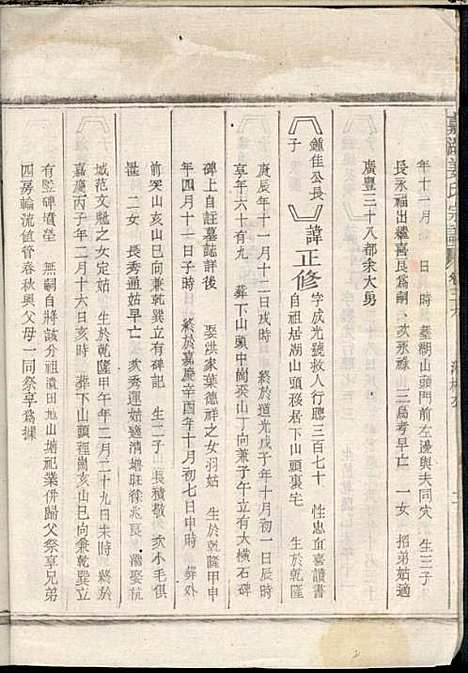 嘉湖姜氏宗譜 卷二六
年十一月 日 時 墓湖山頭門前左邊與夫同穴 生三子
長永福出繼喜良爲嗣 次永祿 三島考早亡 一女 招弟姑適
廣豐三十八都余大勇
鍾佳公長子 諱正修 字成光號救人行應三百七十 性忠直喜讀書
自祖居湖山頭移居下山頭裏宅 生於乾隆
庚辰年十一月十二日戌時 終於道光戊子年十月初一日辰時
享年六十有九 葬下山頭中崗癸山丁向兼子午立有大橫石碑
碑上自註墓誌詳後 娶洪家葉德祥之女羽姑 生於乾隆甲申
年四月十一日子時 終於嘉慶辛酉年十月初七日申時 葬外
前突山亥山巳向兼乾巽立有碑記 生二子 長積敬 次小毛俱
殤 二女 長秀通姑早亡 次秀運姑適清塘駐徐兆良 溺娶杭
城范文魁之女定姑 生於乾隆甲午年二月二十九日未時 終於
嘉慶丙子年二月十六日亥時 葬下山頭裡崗亥山巳向兼乾巽立
有墜碑墳塋 無嗣自將該分祖遺田旭山塘祀業併歸父祭享兄弟
四房輪流值管春秋與父母一同祭享爲據